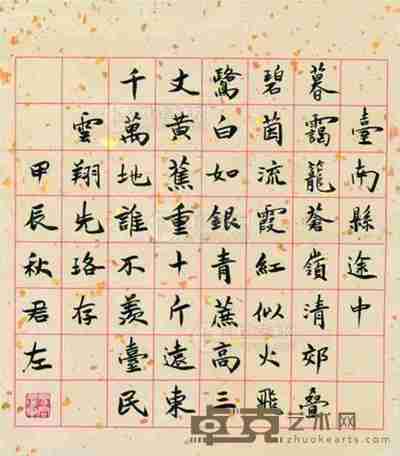 臺南縣途中
暮靄籠蒼嶺清郊疊
碧茵流霞紅似火飛
鷺白如銀青蔗高三
丈黃蕉重十斤遠東
千萬地誰不羨臺民
雲翔先珞存
甲辰秋君左
卓克艺术网
zhuokearts.com